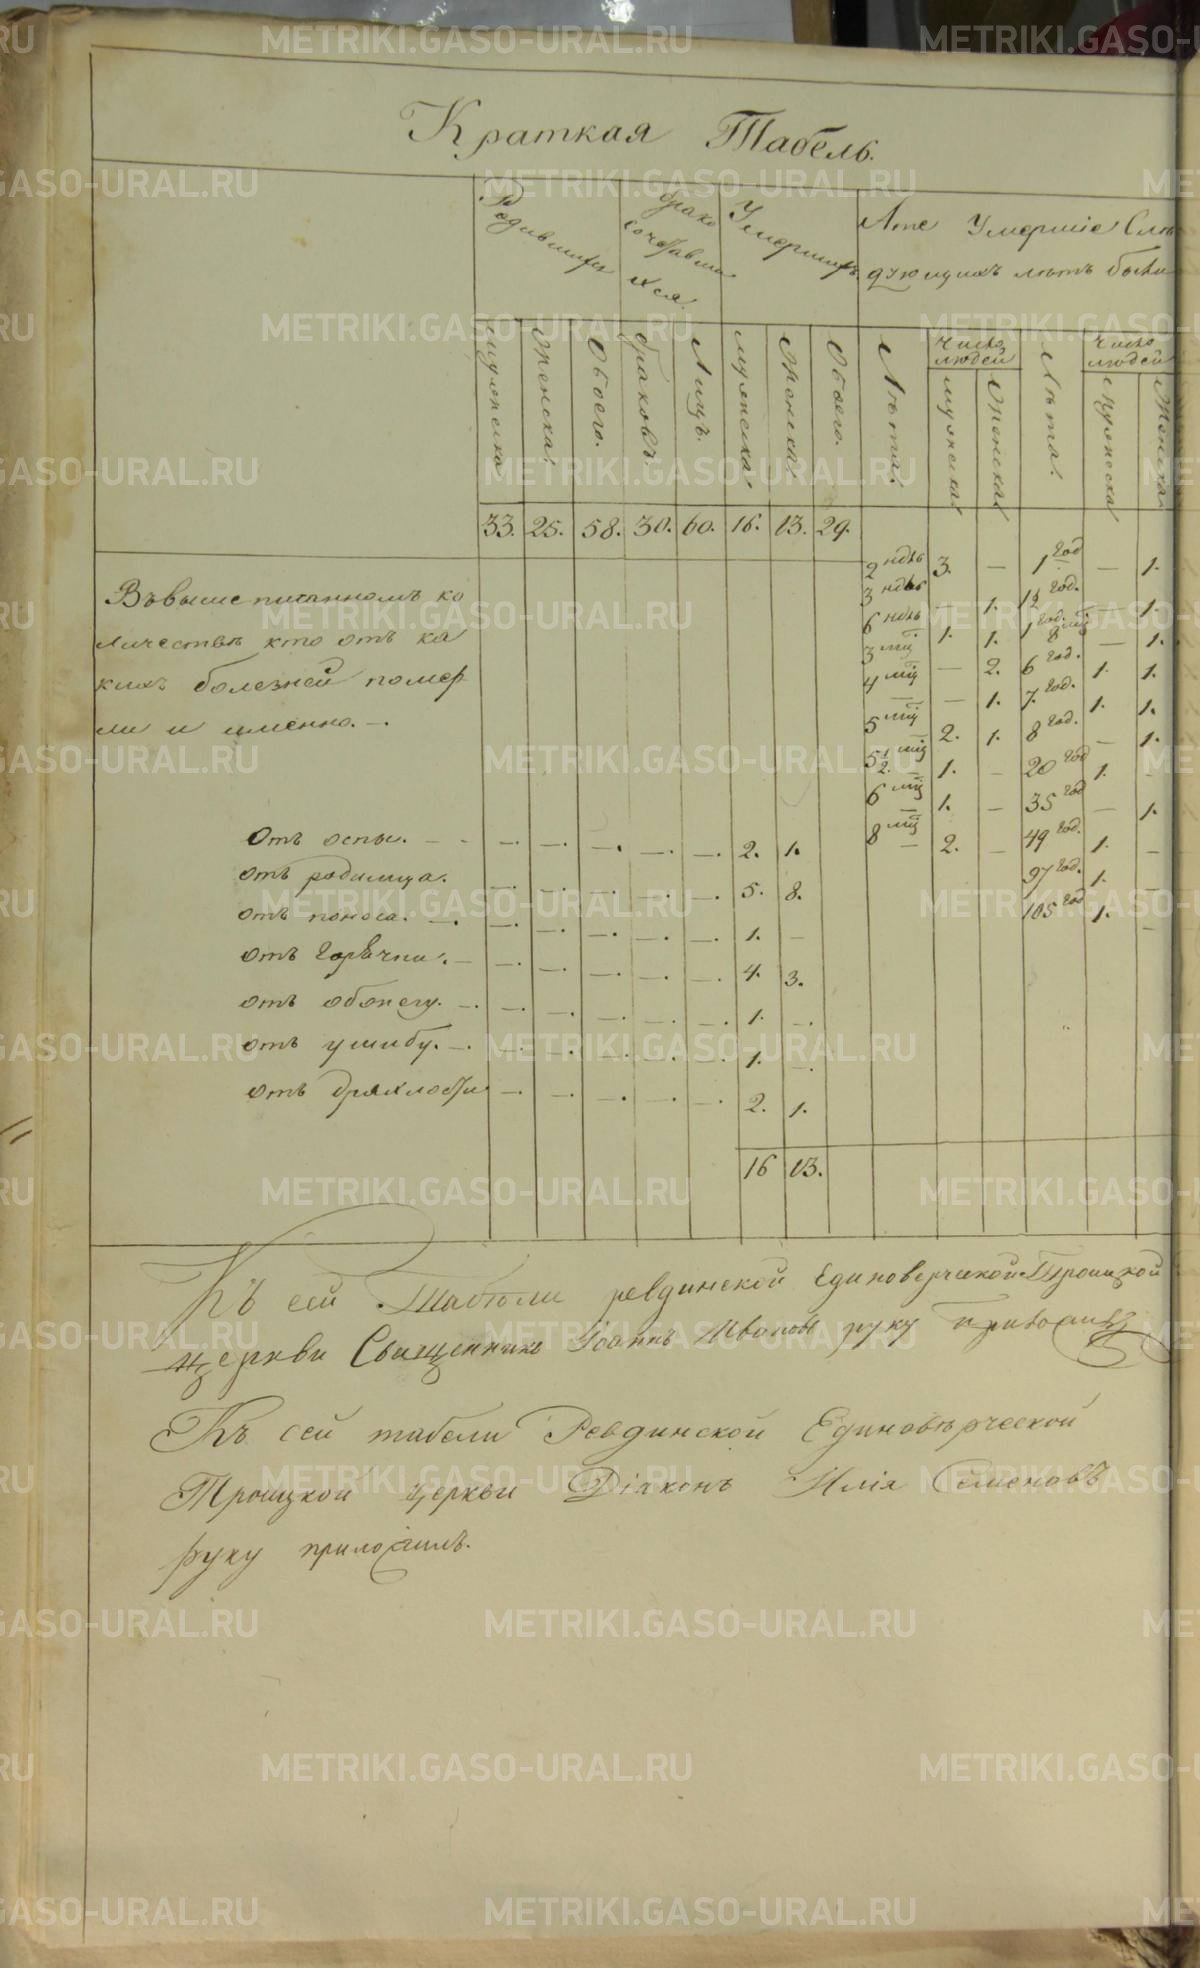 Краткая Табель.
Родившихся
брако сочетавши хся.
Умершихъ
А те Умершіе Слѣ
дующихъ лѣтъ были
мужеска
женска.
Обоего.
браковъ.
Лицъ.
мужеска
женска
Обоего.
Лѣта.
Число людей
мужеска
женска
Лѣта.
Число людей
мужеска
женска
33. 25. 58. 30. 60. 16. 13. 29.
2 ндѣ 3. — 1 год — 1.
3 ндѣ — 1. 1½ год. — 1.
6 ндѣ 1. 1. 1 год. 8 мц — 1.
3 мц — 2. 6 год. 1. 1.
4 мц — 1. 7. год. 1. 1.
5 мц 2. 1. 8 год. — 1.
5½ мц 1. — 20 год 1. —
6 мц 1. — 35 год — 1.
8 мц 2. — 49 год. 1. —
97 год. 1. —
105 год 1. —
Въвышеписанномъ ко
личествѣ кто отъ ка
кихъ болезней помер
ли и именно. —.
Отъ оспы. — — — — — — 2. 1.
отъ родимца. — — — — — 5. 8.
отъ поноса. — — — — — — 1. —
отъ горячки. — — — — — — 4. 3.
отъ обжегу. — — — — — — 1. —
отъ ушибу. — — — — — — 1. —
отъ дряхлости — — — — — 2. 1.
16 13.
Къ сей Табели ревдинской Единоверческой Троицкой
церкви Священникъ Іоаннъ Ивановъ руку приложилъ
Къ сей табели Ревдинской Единовѣрческой
Троицкой церкви Діаконъ Илія Семеновъ
руку приложилъ.
METRIKI.GASO-URAL.RU